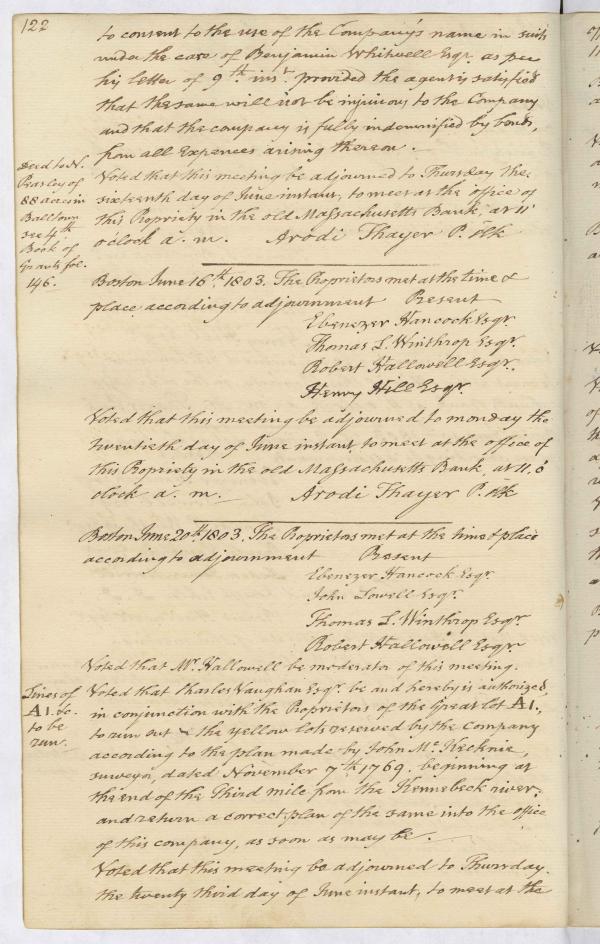 122
to consent to the use of the Company's name in suits
under the care of Benjamin Whitwell Esqr. as per
his letter of 9th inst. provided the agent is satisfied
that the same will not be injurious to the Company
and that the company is fully indemnified by bonds,
from all Expences arising thereon.
Deed to N.
Peasley of
88 acres in
Balltown
see 4th
Book of
Grants fol.
146.
Voted that this meeting be adjourned to Thursday the
sixteenth day of June instant, to meet at the office of
this Propriety in the old Massachusetts Bank, at 11
o'clock a. m. Arodi Thayer P. Clk
Boston June 16th 1803. The Proprietors met at the time &
place according to adjournment Present
Ebenezer Hancock Esqr.
Thomas L. Winthrop Esqr.
Robert Hallowell Esqr.
Henry Hill Esqr.
Voted that this meeting be adjourned to monday the
twentieth day of June instant, to meet at the office of
this Propriety in the old Massachusetts Bank, at 11, o'
clock a. m. Arodi Thayer P. Clk
Boston June 20th 1803. The Proprietors met at the time & place
according to adjournment Present
Ebenezer Hancock Esqr.
John Lowell Esqr.
Thomas L. Winthrop Esqr.
Robert Hallowell Esqr.
Voted that Mr. Hallowell be moderator of this meeting.
Lines of
A 1. &c.
to be
run.
Voted that Charles Vaughan Esqr. be and hereby is authorized,
in conjunction with the Proprietors of the Great lot A1.,
to run out & the yellow lots reserved by the Company
according to the plan made by John Mc. Kecknie,
surveyor, dated November 7th 1769. beginning at
the end of the Third mile from the Kennebeck river,
and return a correct plan of the same into the office
of this company, as soon as may be.
Voted that this meeting be adjourned to Thursday
the twenty third day of June instant, to meet at the